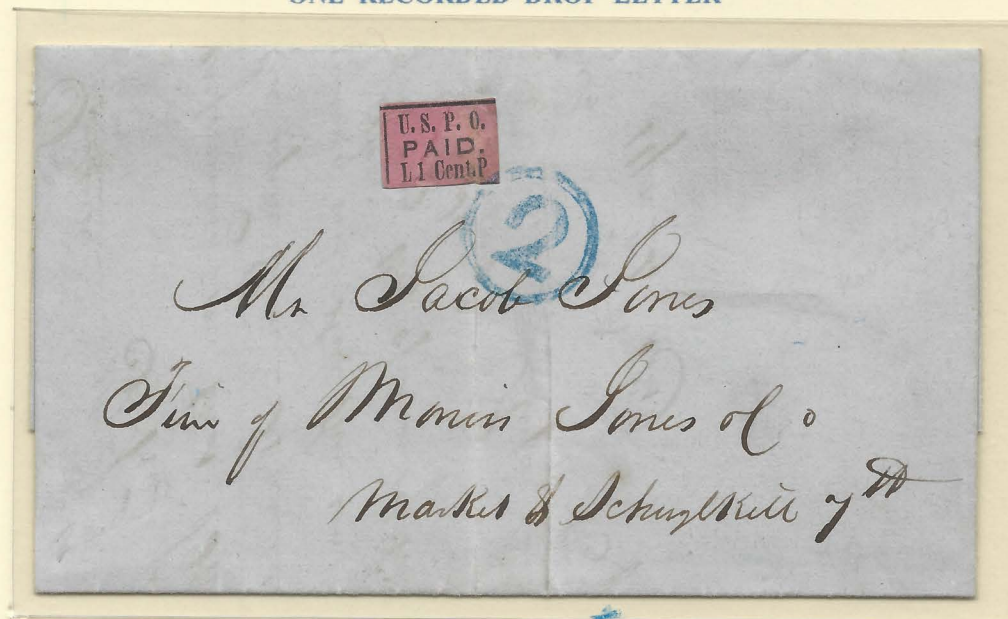 ONE RECORDED DROP LETTER
U. S. P. O.
PAID.
L 1 Cent. P
2
Mr Jacob Jones
Firm of Morris Jones & Co
Market & Schuylkill 7th